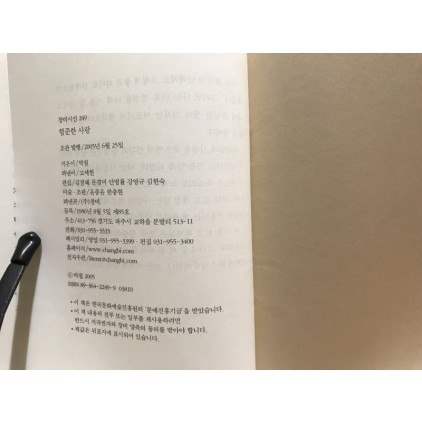 창비시선 249
험준한 사랑
초판 발행/2005년 6월 25일
지은이/박철
펴낸이/고세현
편집/김정혜 문경미 안병률 강영규 김현숙
미술·조판/윤종윤 한충현
펴낸곳/(주)창비
등록/1986년 8월 5일 제85호
주소/413-756 경기도 파주시 교하읍 문발리 513-11
전화/031-955-3333
팩시밀리/영업 031-955-3399 · 편집 031-955-3400
홈페이지/www.changbi.com
전자우편/literat@changbi.com
ⓒ박철 2005
ISBN 89-364-2249-9 03810
* 이 책은 한국문화예술진흥원의 '문예진흥기금'을 받았습니다.
* 이 책 내용의 전부 또는 일부를 재사용하려면
반드시 저작권자와 창비 양측의 동의를 받아야 합니다.
* 책값은 뒤표지에 표시되어 있습니다.